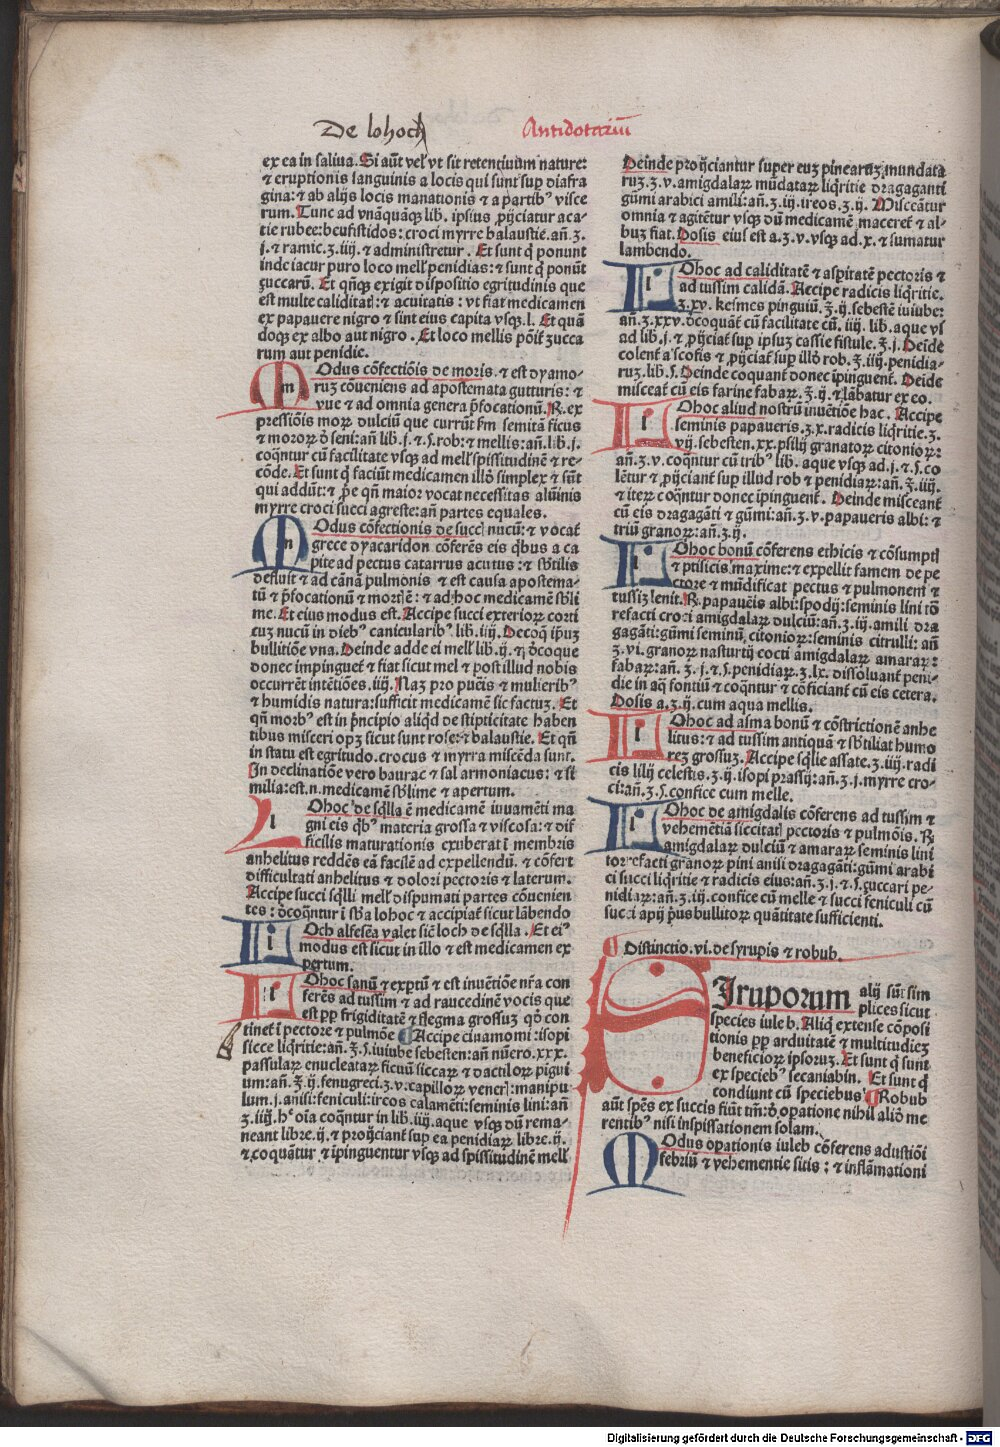 De lohoch
Antidotariū
ex ea in saliua. Si aūt vel' vt sit retentiuum nature:
⁊ eruptionis sanguinis a locis qui sunt sup diafra
gina: ⁊ ab alijs locis manationis ⁊ a partib⁹ visce
rum. Tunc ad vnāquāqꝫ lib. ipsius ꝓijciatur aca-
tie rubee: beufistidos: croci myrre balaustie. añ. ʒ.
j. ⁊ ramic. ʒ. iiij. ⁊ administretur. Et sunt q̄ ponunt
inde iacur puro loco mell' penidias: ⁊ sunt q̄ ponūt
zuccarū. Et qn̄qꝫ exigit dispositio egritudinis que
est multe caliditat' ⁊ acuitatis: vt fiat medicamen
ex papauere nigro ⁊ sint eius capita vsqꝫ. l. Et quā
doqꝫ ex albo aut nigro. Et loco mellis pōit' zucca
rum aut penidie.
Odus cōfectiōis de moris. ⁊ est dyamo-
ruꝫ cōueniens ad apostemata gutturis: ⁊
vue ⁊ ad omnia genera p̄focationū. ℞. ex
pressiōis moꝝ dulciū que currūt ẜm semitā ficus
⁊ moroꝝ ꝺ̄ seni: añ lib. j. ⁊ ẜ. rob: ⁊ mellis: añ. lib. j.
coqn̄tur cū facilitate vsqꝫ ad mell' spissitudinē ⁊ re-
cōde. Et sunt q̄ faciūt medicamen illđ simplex ⁊ sūt
qui addūt: ⁊ p̄e qn̄ maior vocat necessitas alūinis
myrre croci succi agreste: añ partes equales.
Odus cōfectionis de succ' nucū: ⁊ vocat'
grece dyacaridon cōferēs eis q̄bus a ca
pite ad pectus catarrus acutus: ⁊ sb̄tilis
defluit ⁊ ad cānā pulmonis ⁊ est causa apostema-
tū ⁊ p̄focationū ⁊ mort' ē: ⁊ ad hoc medicamē sb̄li
me. Et eius modus est. Accipe succi exterioꝝ corti
cuꝫ nucū in dieb⁹ canicularib⁹. lib. iiij. Decoq̄ ip̄uꝫ
bullitiōe vna. Deinde adde ei mell' lib. ij. ⁊ ꝺ̄coque
donec impinguet' ⁊ fiat sicut mel ⁊ post illud nobis
occurrēt intētiōes. iiij. Naꝫ pro pueis ⁊ mulierib⁹
⁊ humidis natura: sufficit medicamē sic factuꝫ. Et
qn̄ morb⁹ est in p̄ncipio aliqđ de stipticitate haben
tibus misceri opꝫ sicut sunt rose: ⁊ balaustie. Et qn̄
in statu est egritudo. crocus ⁊ myrra miscēda sunt.
In declinatiōe vero baurac ⁊ sal armoniacus: ⁊ si
milia: est. n. medicamē sb̄lime ⁊ apertum.
Ohoc de sq̄lla ē medicamē iuuamēti ma
gni eis qb⁹ materia grossa ⁊ viscosa: ⁊ dif
ficilis maturationis exuberat ī membris
anhelitus reddēs eā facilē ad expellendū. ⁊ cōfert
difficultati anhelitus ⁊ dolori pectoris ⁊ laterum.
Accipe succi sq̄lli mell' dispumati partes cōuenien
tes: ꝺ̄coqn̄tur ī sb̄a lohoc ⁊ accipiat' sicut lābendo
Och alfesea valet sicut loch de sq̄lla. Et ei⁹
modus est sicut in illo ⁊ est medicamen ex
pertum.
Ohoc sanū ⁊ exptū ⁊ est inuētiōe nr̄a con
ferēs ad tussim ⁊ ad raucedinē vocis que
est pp frigiditatē ⁊ flegma grossuꝫ qđ con
tinet' ī pectore ⁊ pulmōe Accipe cinamomi: isopi
sicce liq̄ritie: añ. ʒ. ẜ. iuiube sebesten: añ nūero. xxx.
passulaꝝ enucleataꝝ ficuū siccaꝝ ⁊ dactiloꝝ pigui
um: añ. ℥. ij. fenugreci. ʒ. v. capilloꝝ vener': manipu
lum. j. anisi: feniculi: ireos calamēti: seminis lini: añ
ʒ. iiij. h̄c oīa coqn̄tur in lib. iiij. aque vsqꝫ dū rema-
neant libre. ij. ⁊ proijciant' sup ea penidiaꝝ libre. ij.
⁊ coquātur ⁊ īpinguentur vsqꝫ ad spissitudinē mell'
Deinde proijciantur super euꝫ pinearuꝫ mundata
ruꝫ. ʒ. v. amigdalaꝝ mūdataꝝ liq̄ritie dragaganti
gūmi arabici amili: añ. ʒ. iij. ireos. ʒ. ij. Misceātur
omnia ⁊ agitētur vsqꝫ dū medicamē maceret' ⁊ al-
buꝫ fiat. Dosis eius est a. ʒ. v. vsqꝫ ad. x. ⁊ sumatur
lambendo.
Ohoc ad caliditatē ⁊ aspitatē pectoris ⁊
ad tussim calidā. Accipe radicis liq̄ritie.
ʒ. xv. kesmes pinguiū. ℥. ij. sebestē iuiube:
añ. ʒ. xxv. ꝺ̄coquāt' cū facilitate cū. iiij. lib. aque vsqꝫ
ad lib. j. ⁊ ꝓijciat' sup ipsuꝫ cassie fistule. ℥. j. Deīde
colent' a scofis ⁊ ꝓijciat' sup illđ rob. ℥. iiij. penidia-
ruꝫ. lib. ẜ. Deinde coquant' donec īpinguent'. Deīde
misceat' cū eis farine fabaꝝ. ℥. ij. ⁊ lābatur ex eo.
Ohoc aliud nostrū inuētiōe hac. Accipe
seminis papaueris. ʒ. x. radicis liq̄ritie. ʒ.
vij. sebesten. xx. psilij granatoꝝ citonioꝝ:
añ. ʒ. v. coqn̄tur cū trib⁹ lib. aque vsqꝫ ad. j. ⁊ ẜ. co
lētur ⁊ ꝓijciant' sup illud rob ⁊ penidiaꝝ: añ. ℥. iiij.
⁊ iterꝫ coqn̄tur donec īpinguent'. Deinde misceant'
cū eis dragagāti ⁊ gūmi: añ. ʒ. v. papaueris albi: ⁊
triū granoꝝ: añ. ʒ. ij.
Ohoc bonū cōferens ethicis ⁊ cōsumpt'
⁊ ptisicis maxime: ⁊ expellit famem de pe
ctore ⁊ mūdificat pectus ⁊ pulmonem ⁊
tussiꝫ lenit. ℞. papaueis albi: spodij: seminis lini tō
refacti croci amigdalaꝝ dulciū: añ. ʒ. iij. amili dra
gagāti: gūmi seminū, citonioꝝ: seminis citrulli: añ
ʒ. vi. granoꝝ nasturtij cocti amigdalaꝝ amaraꝝ:
fabaꝝ: añ. ʒ. j. ⁊ ẜ. penidiaꝝ. ʒ. lx. dissoluant' peni-
die in aq̄ fontiū ⁊ coqn̄tur ⁊ cōficiant' cū eis cetera.
Dosis a. ʒ. ij. cum aqua mellis.
Ohoc ad asma bonū ⁊ cōstrictionē anhe
litus: ⁊ ad tussim antiquā ⁊ sb̄tiliat humo
reꝫ grossuꝫ. Accipe sq̄lle assate. ʒ. iiij. radi
cis lilij celestis. ʒ. ij. isopi prassij: añ. ʒ. j. myrre cro-
ci: añ. ʒ. ẜ. confice cum melle.
Ohoc de amigdalis cōferens ad tussim ⁊
vehemētiā siccitat' pectoris ⁊ pulmōis. ℞
amigdalaꝝ dulciū ⁊ amaraꝝ seminis lini
torrefacti granoꝝ pini anisi dragagāti: gūmi arabi
ci succi liq̄ritie ⁊ radicis eius: añ. ʒ. j. ⁊ ẜ. guccari pe-
nidiaꝝ: añ. ʒ. iij. confice cū melle ⁊ succi feniculi cū
succi apij p̄us bullitoꝝ quātitate sufficienti.
Distinctio. vi. de syrupis ⁊ robub.
Siruporum alij sūt sim
plices sicut
species iuleb. Aliq̄ extense cōposi
tionis pp arduitatē ⁊ multitudieꝫ
beneficioꝝ ipsoruꝫ. Et sunt q̄ sunt
ex specieb⁹ secaniabin. Et sunt q̄
condiunt cū speciebus Robub
aūt sp̄es ex succis fiūt tm̄: ꝺ̄ opatione nihil aliđ me
rentib⁹ nisi inspissationem solam.
Odus opationis iuleb cōferens adustiōi
febriū ⁊ vehementie sitis: ⁊ inflāmationi
Digitalisierung gefördert durch die Deutsche Forschungsgemeinschaft - DFG